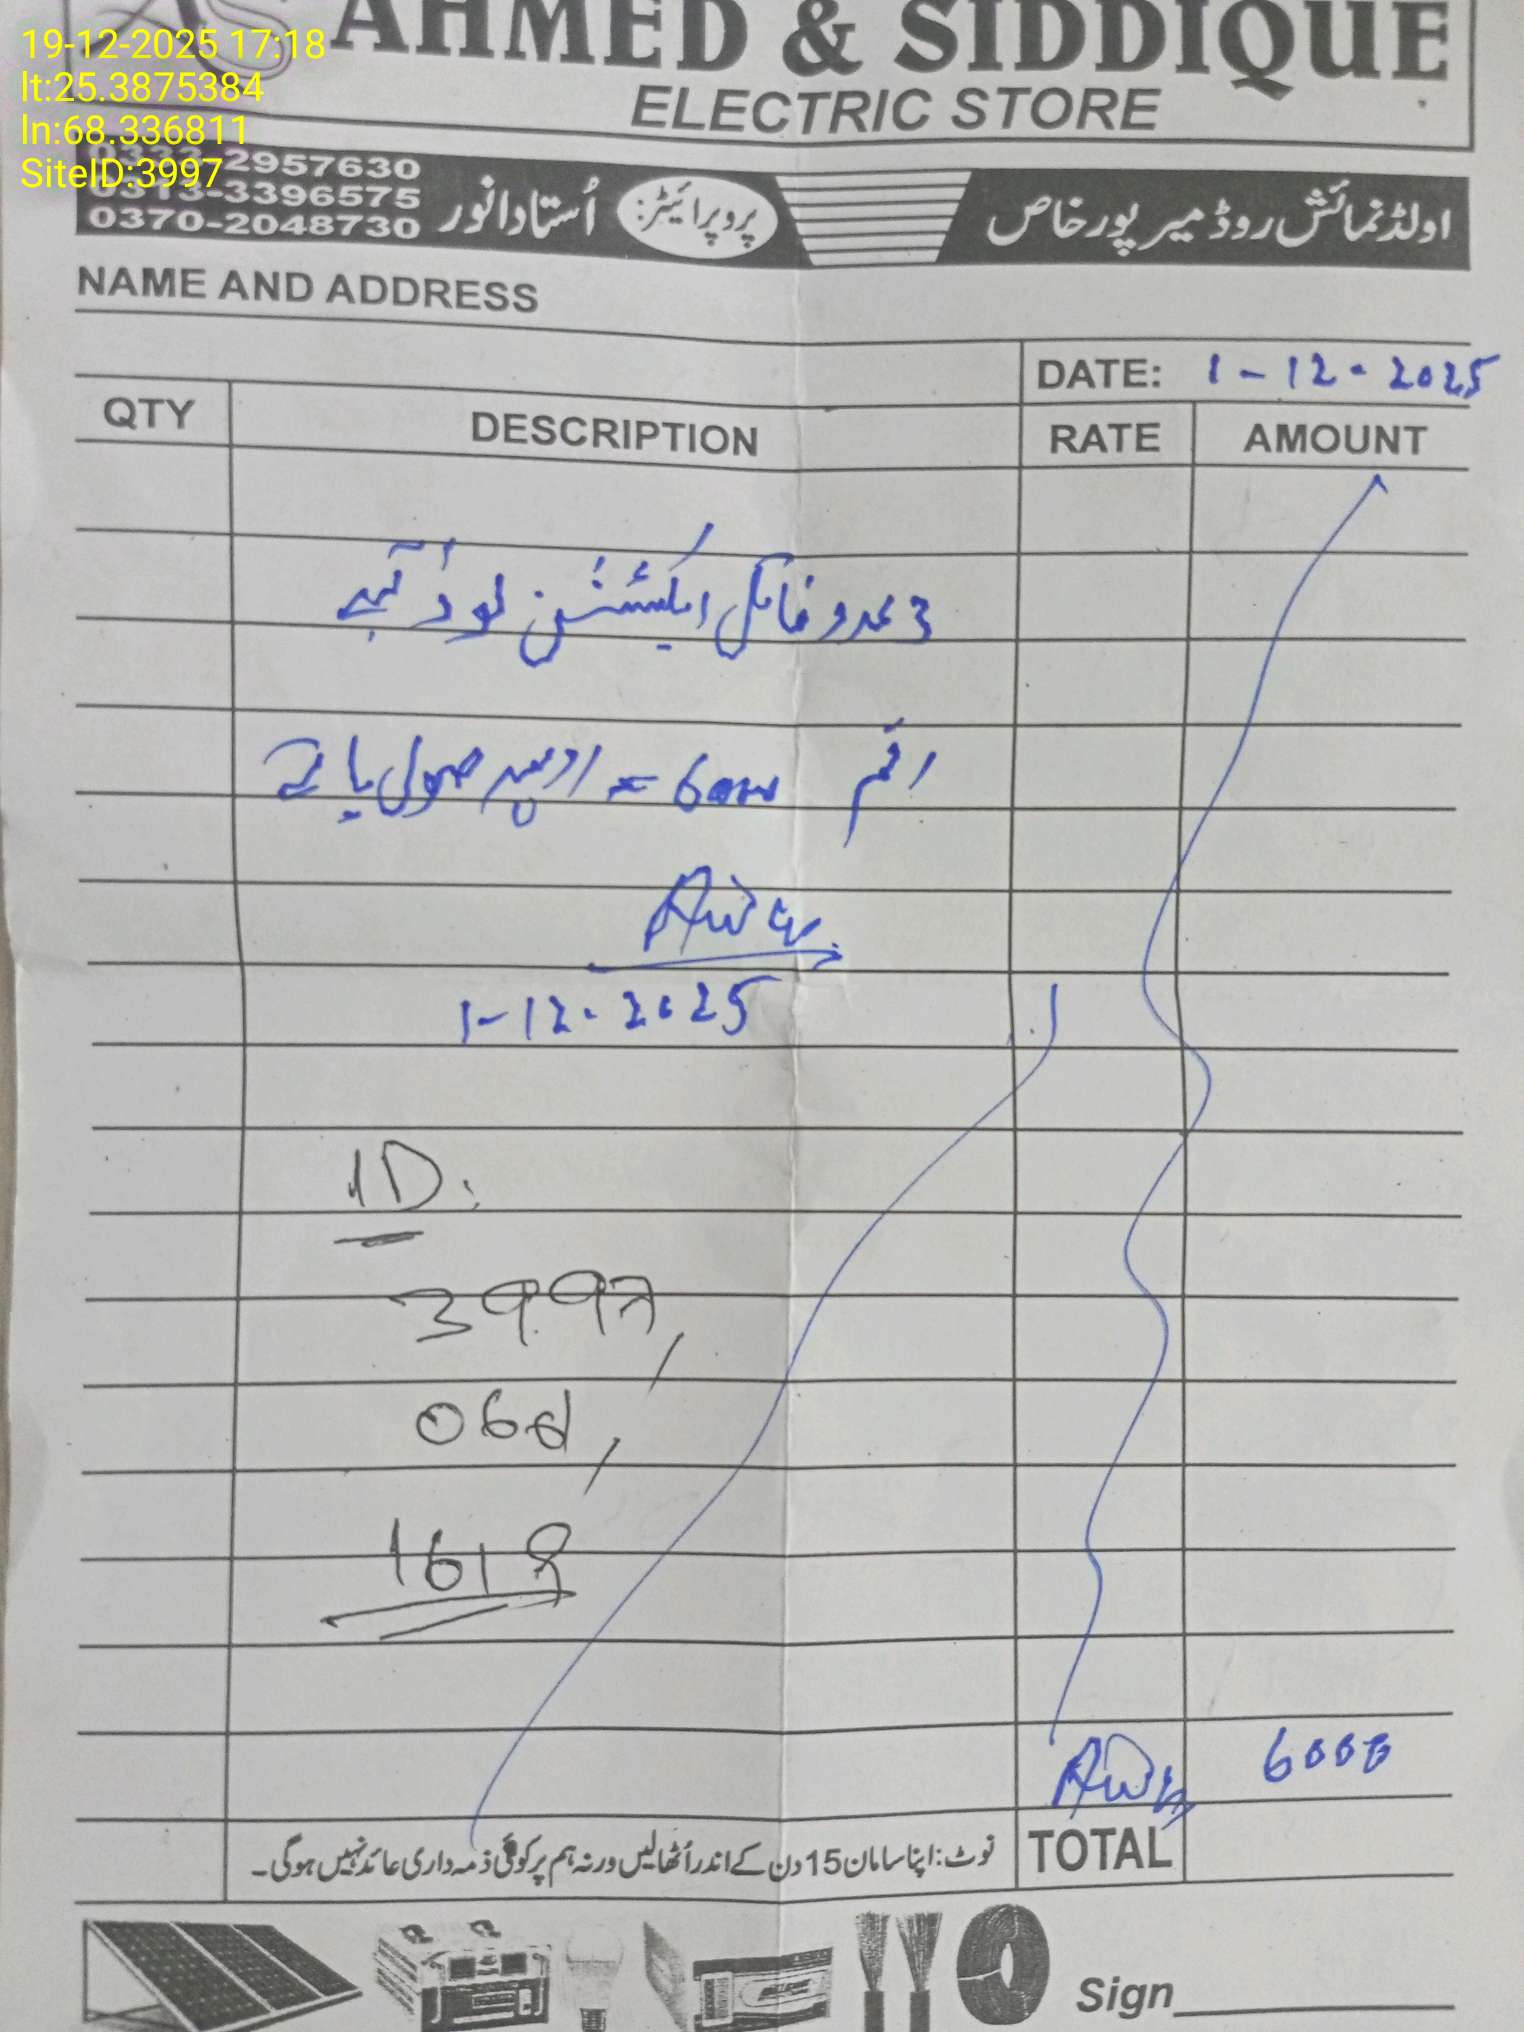 19-12-2025 17:18
lt:25.3875384
ln:68.336811
SiteID:3997
AS AHMED & SIDDIQUE
ELECTRIC STORE
-2957630
0313-3396575
0370-2048730
پروپرائیٹر: اُستاد انور
اولڈ نمائش روڈ میرپورخاص
NAME AND ADDRESS
DATE: 1-12-2025
QTY DESCRIPTION RATE AMOUNT
3 عدد فائل
رقم 6000 = روپیہ وصول پائے
1-12-2025
ID:
3997,
1619
6000
نوٹ: اپنا سامان 15 دن کے اندر اُٹھالیں ورنہ ہم پر کوئی ذمہ داری عائد نہیں ہوگی۔
TOTAL
Sign